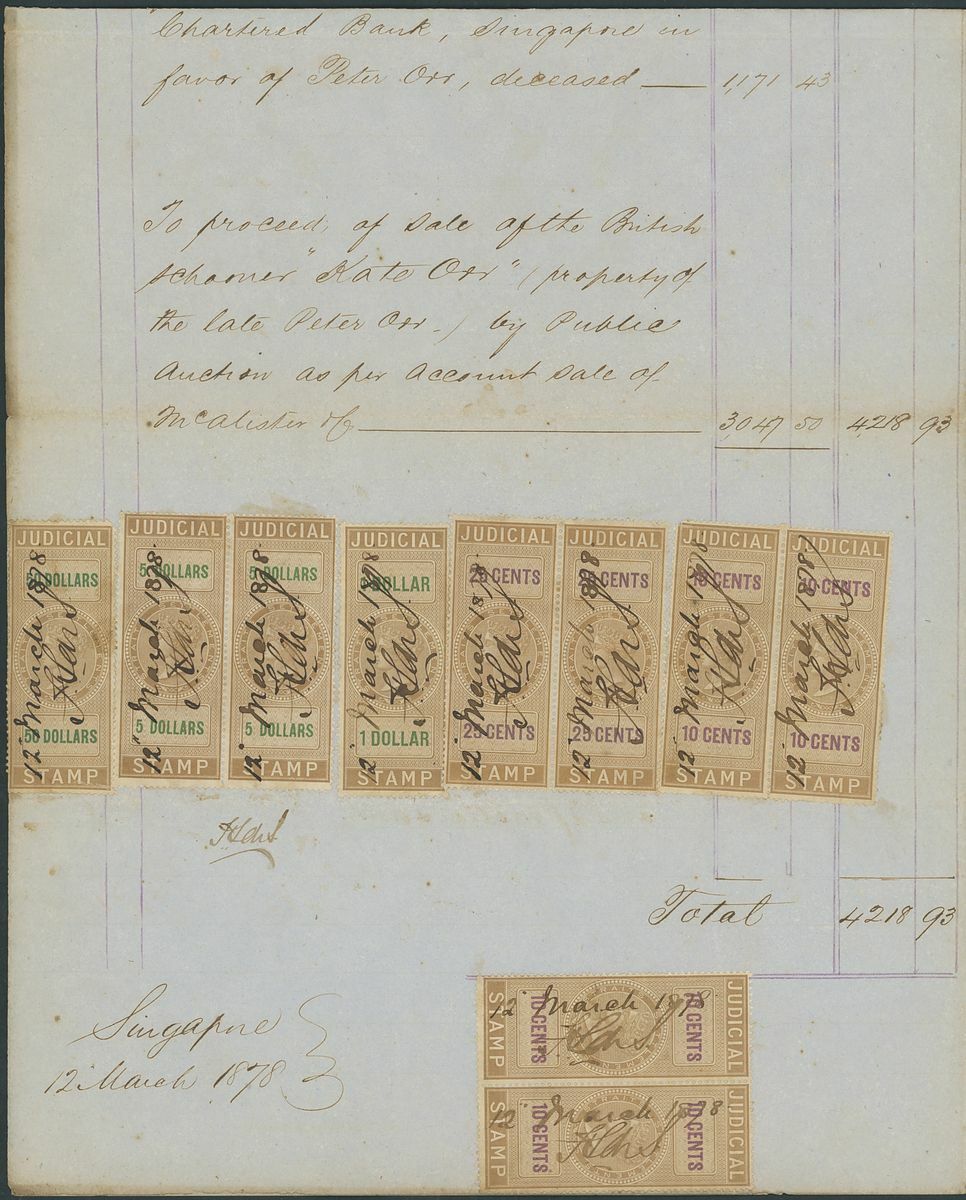 Chartered Bank, Singapore in
favor of Peter Orr, deceased — 1,171 43
To proceeds of sale of the British
schooner "Kate Orr" (property of
the late Peter Orr -) by Public
Auction as per Account Sale of
McAlister & Co 3,047 50 4,218 93
JUDICIAL JUDICIAL JUDICIAL JUDICIAL JUDICIAL JUDICIAL JUDICIAL JUDICIAL
50 DOLLARS 5 DOLLARS 5 DOLLARS 1 DOLLAR 25 CENTS 25 CENTS 10 CENTS 10 CENTS
12 March 1878 12 March 1878 12 March 1878 12 March 1878 12 March 1878 12 March 1878 12 March 1878 12 March 1878
50 DOLLARS 5 DOLLARS 5 DOLLARS 1 DOLLAR 25 CENTS 25 CENTS 10 CENTS 10 CENTS
STAMP STAMP STAMP STAMP STAMP STAMP STAMP STAMP
Total 4218 93
Singapore
12 March 1878
JUDICIAL
10 CENTS
12 March 1878
10 CENTS
STAMP
JUDICIAL
10 CENTS
12 March 1878
10 CENTS
STAMP